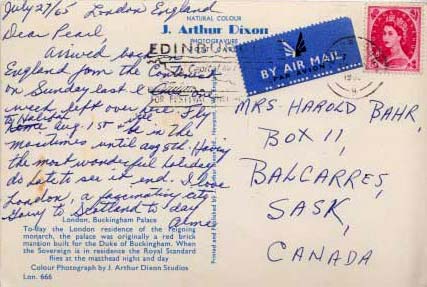 July 27/65 London England
NATURAL COLOUR
J. Arthur Dixon
PHOTOGRAVURE
POST CARD
Dear Pearl
Arrived back
England from the Continent
on Sunday last &
week left over here Fly
to Halifax
home Aug. 1st & be in the
maritimes until Aug 8th. Having
the most wonderful holiday
do hate to see it end. I love
London, a fascinating city
Going to Scotland to day
EDIN
FOR FESTIVAL
BY AIR MAIL
PAR AVION
MRS. HAROLD BAHR,
BOX 11,
BALCARRES,
SASK,
CANADA
London, Buckingham Palace
To-day the London residence of the reigning
monarch, the palace was originally a red brick
mansion built for the Duke of Buckingham. When
the Sovereign is in residence the Royal Standard
flies at the masthead night and day
Colour Photograph by J. Arthur Dixon Studios
Lon. 666